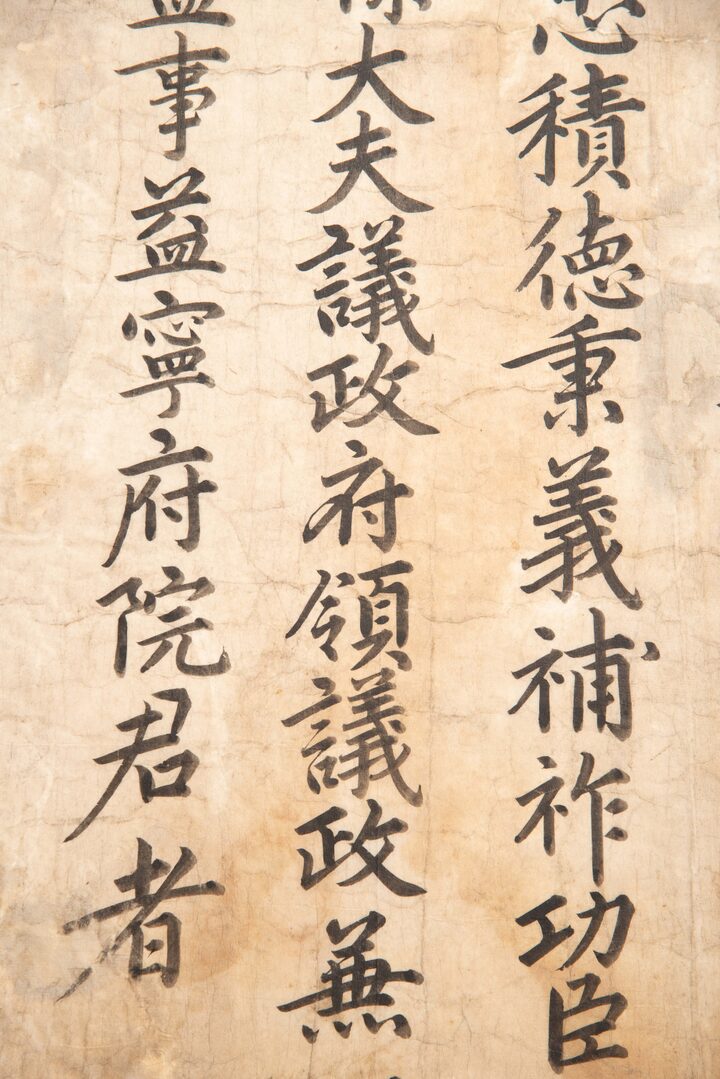 積德秉義補祚功臣
大夫議政府領議政兼
事益寧府院君者